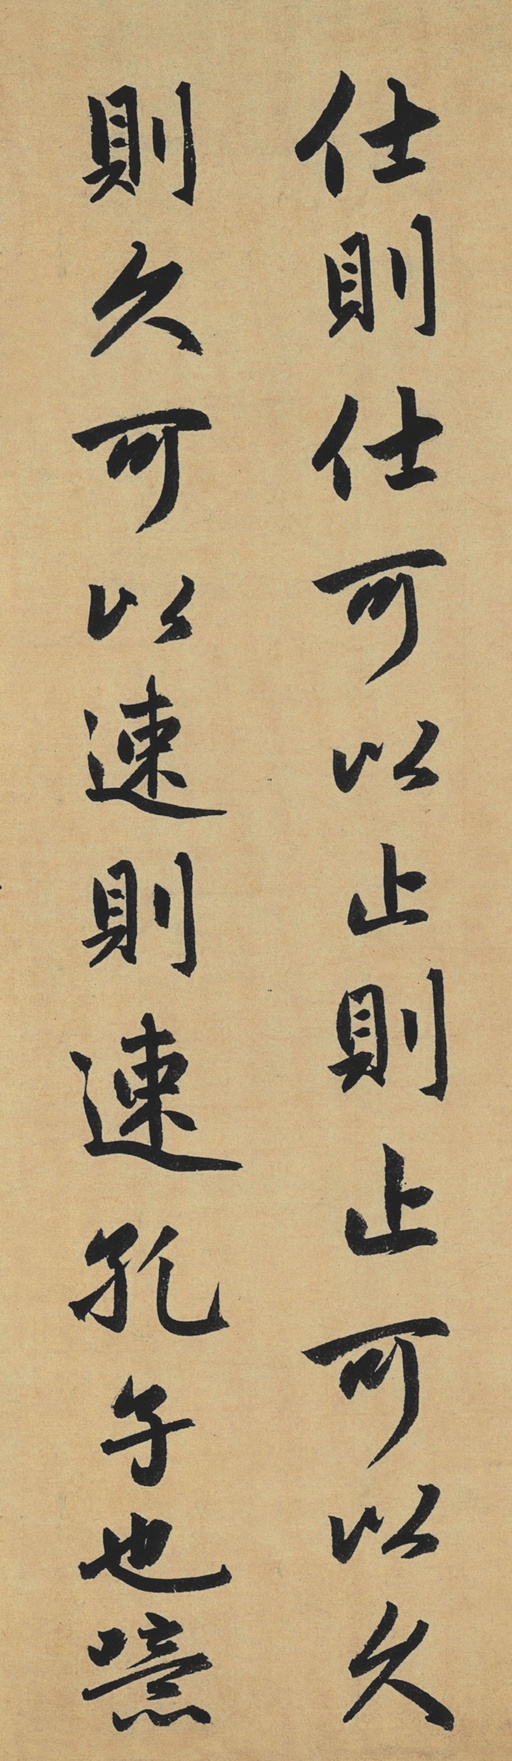 仕則仕可以止則止可以久
則久可以速則速孔子也噫